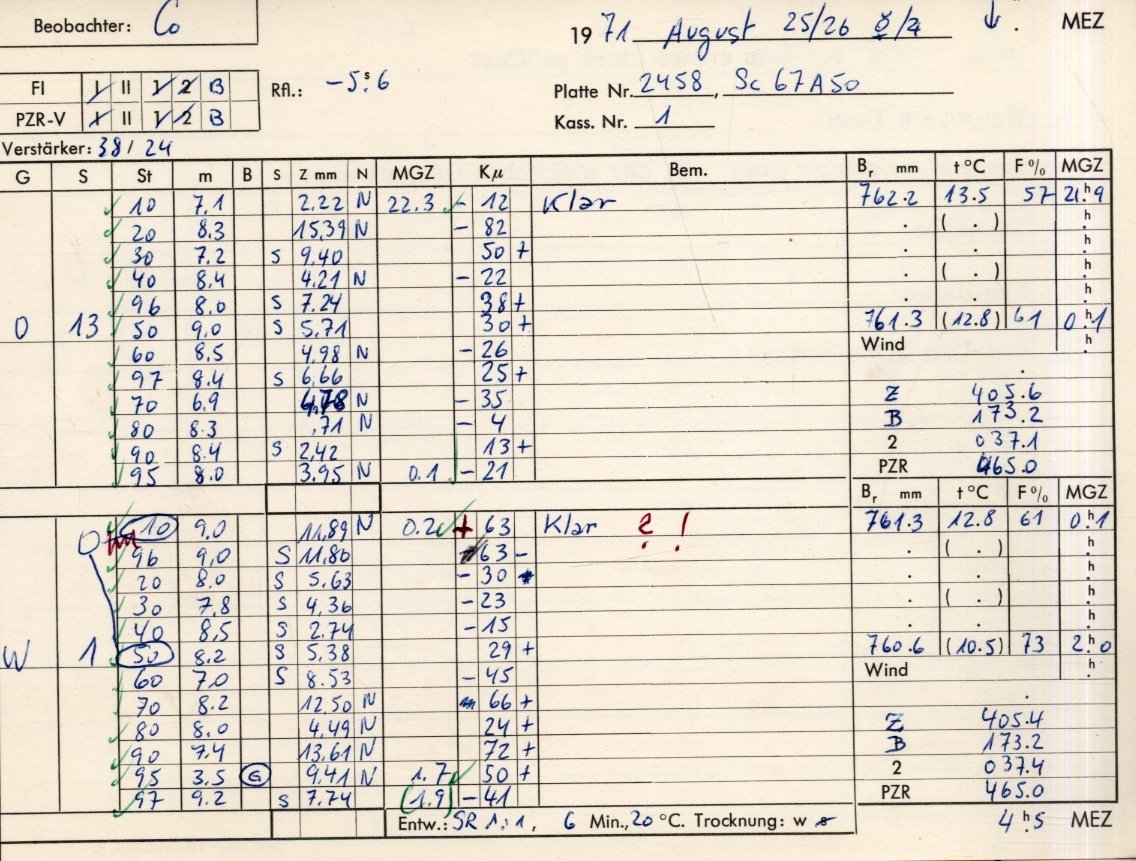 Beobachter: Co
1971 August 25/26 ☿/♃ ↓ . MEZ
FI I II 1 2 B Rfl.: -5ˢ.6 Platte Nr. 2458, Sc 67A50
PZR-V I II 1 2 B Kass. Nr. 1
Verstärker: 38/24
G S St m B S Z mm N MGZ Kμ Bem. Bᵣ mm t °C F % MGZ
10 7.1 2.22 N 22.3 - 12 Klar 762.2 13.5 57 21ʰ.9
20 8.3 15.39 N - 82
30 7.2 S 9.40 50 +
40 8.4 4.21 N - 22
96 8.0 S 7.24 38 +
O 13 50 9.0 S 5.71 30 + 761.3 (12.8) 61 0ʰ.1
60 8.5 4.98 N - 26 Wind
97 8.4 S 6.66 25 +
70 6.9 4.78 N - 35 Z 405.6
80 8.3 .71 N - 4 B 173.2
90 8.4 S 2.42 13 + 2 037.1
95 8.0 3.95 N 0.1 - 21 PZR 465.0
Bᵣ mm t °C F % MGZ
10 9.0 11.89 N 0.2 + 63 Klar ? ! 761.3 12.8 61 0ʰ.1
O 96 9.0 S 11.80 63 -
20 8.0 S 5.63 - 30
30 7.8 S 4.36 - 23
40 8.5 S 2.74 - 15
W 1 50 8.2 S 5.38 29 + 760.6 (10.5) 73 2ʰ.0
60 7.0 S 8.53 - 45 Wind
70 8.2 12.50 N 66 +
80 8.0 4.49 N 24 + Z 405.4
90 7.4 13.61 N 72 + B 173.2
95 3.5 G 9.41 N 1.7 50 + 2 037.4
97 9.2 S 7.74 (1.9) - 41 PZR 465.0
Entw.: SR 1:1, 6 Min., 20 °C. Trocknung: w s 4ʰ.5 MEZ